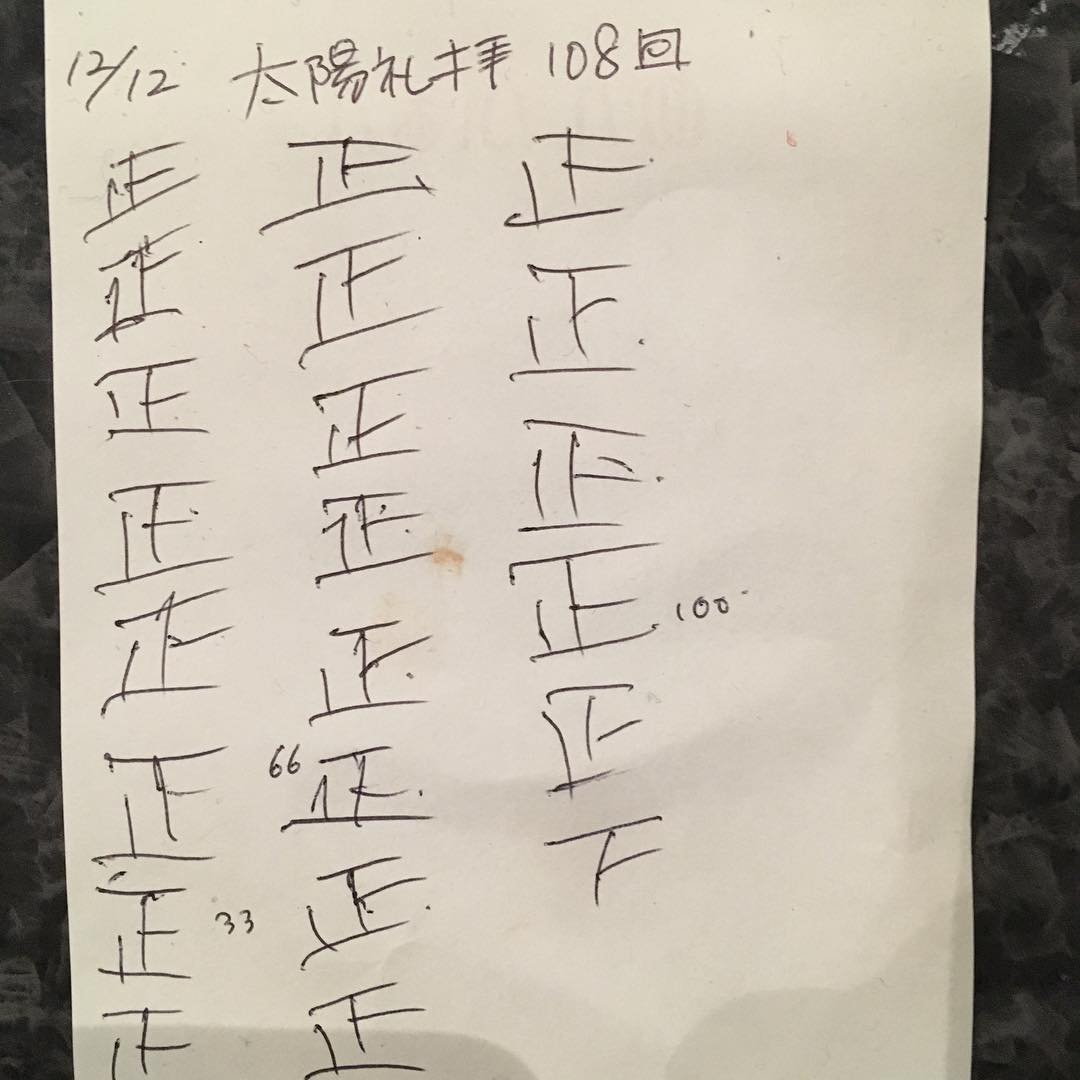 12/12 太陽礼拝 108回
正 正 正
正 正 正
正 正 正
正 正 正 100
正 正 正
正 66 正 下
正 33 正
正 正